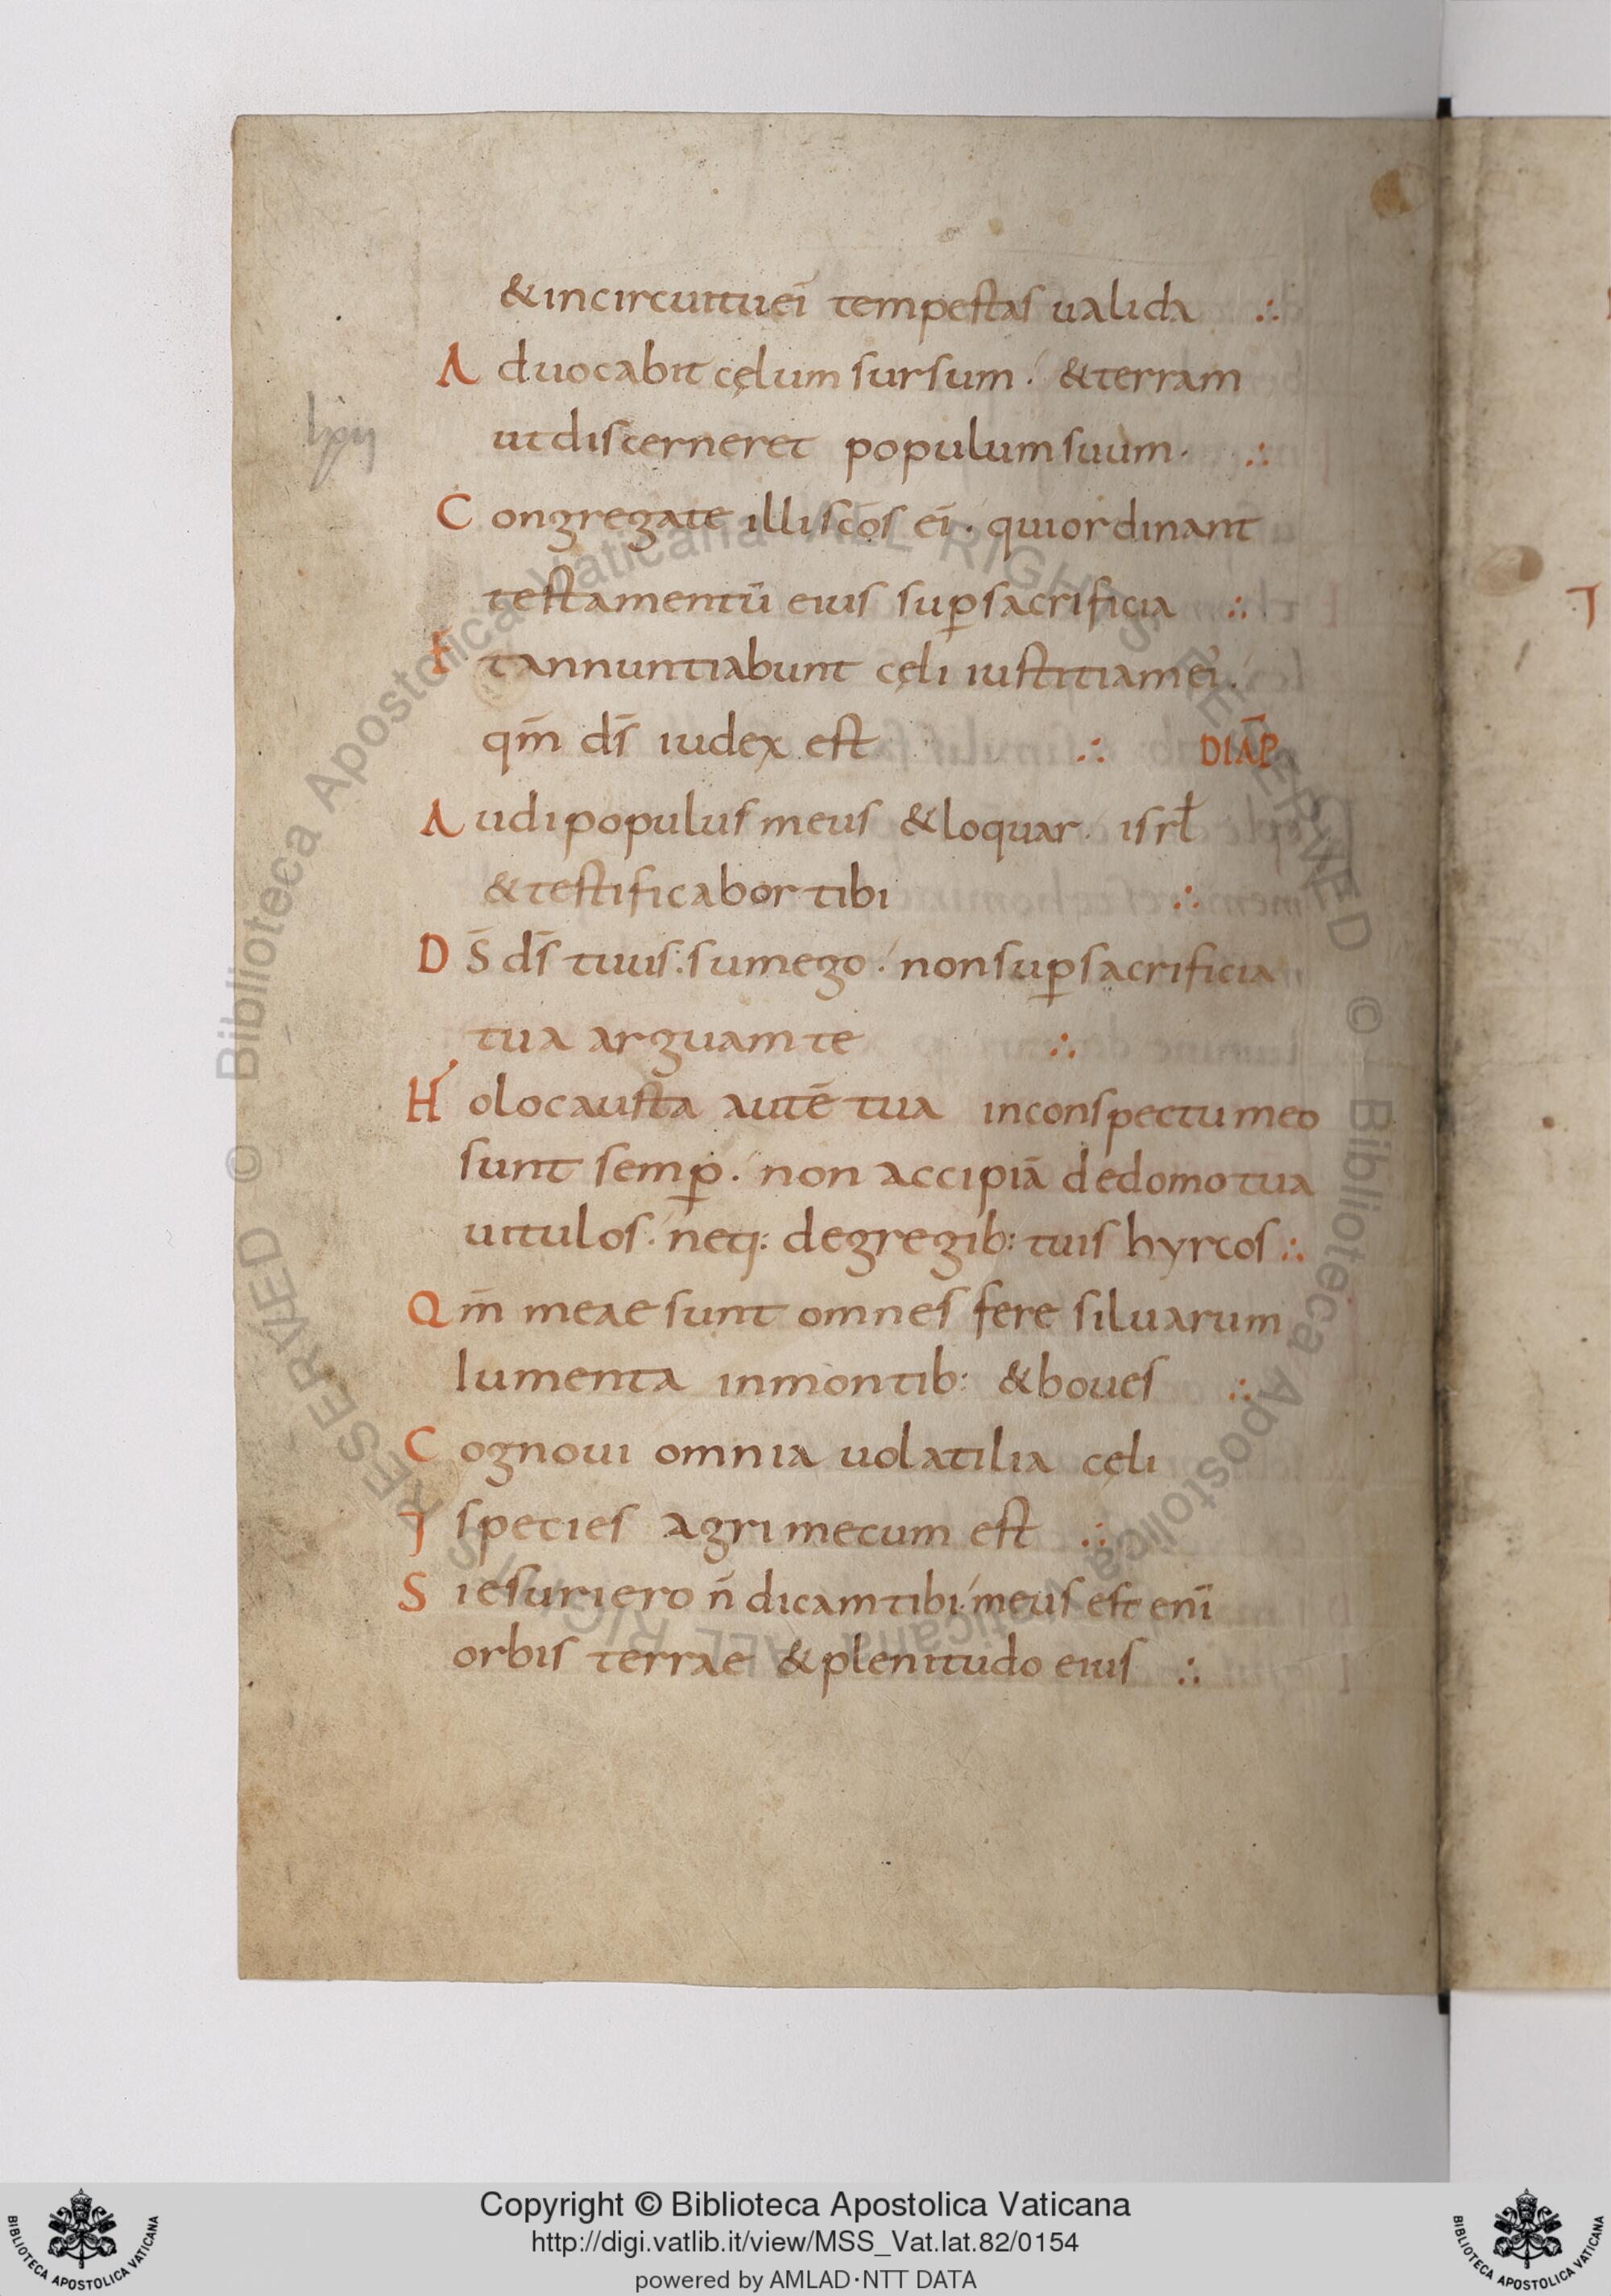 &incircuitu eī tempestas ualida ∴
A duocabit cęlum sursum. &terram
ut discerneret populum suum. ∴
C ongregate illi scōs eī. qui ordinant
testamentū eius sup̱ sacrificia ∴
E t annuntiabunt cęli iustitiam eī.
qm̄ ds̄ iudex est ∴ DIAP̄
A udi populus meus &loquar. isrł
&testificabor tibi ∴
D S̄ ds̄ tuus: sum ego. non sup̱ sacrificia
tua arguam te ∴
H olocausta autē tua in conspectu meo
sunt semp̱. non accipiā de domo tua
uitulos. neq: de gregib: tuis hyrcos ∴
Q m̄ meae sunt omnes fere siluarum
Iumenta in montib: &boues ∴
C ognoui omnia uolatilia cęli
⁊ species agri mecum est ∴
S i esuriero n̄ dicam tibi. meus est enī
orbis terrae &plenitudo eius ∴
Copyright © Biblioteca Apostolica Vaticana
http://digi.vatlib.it/view/MSS_Vat.lat.82/0154
powered by AMLAD·NTT DATA
BIBLIOTECA APOSTOLICA VATICANA
BIBLIOTECA APOSTOLICA VATICANA